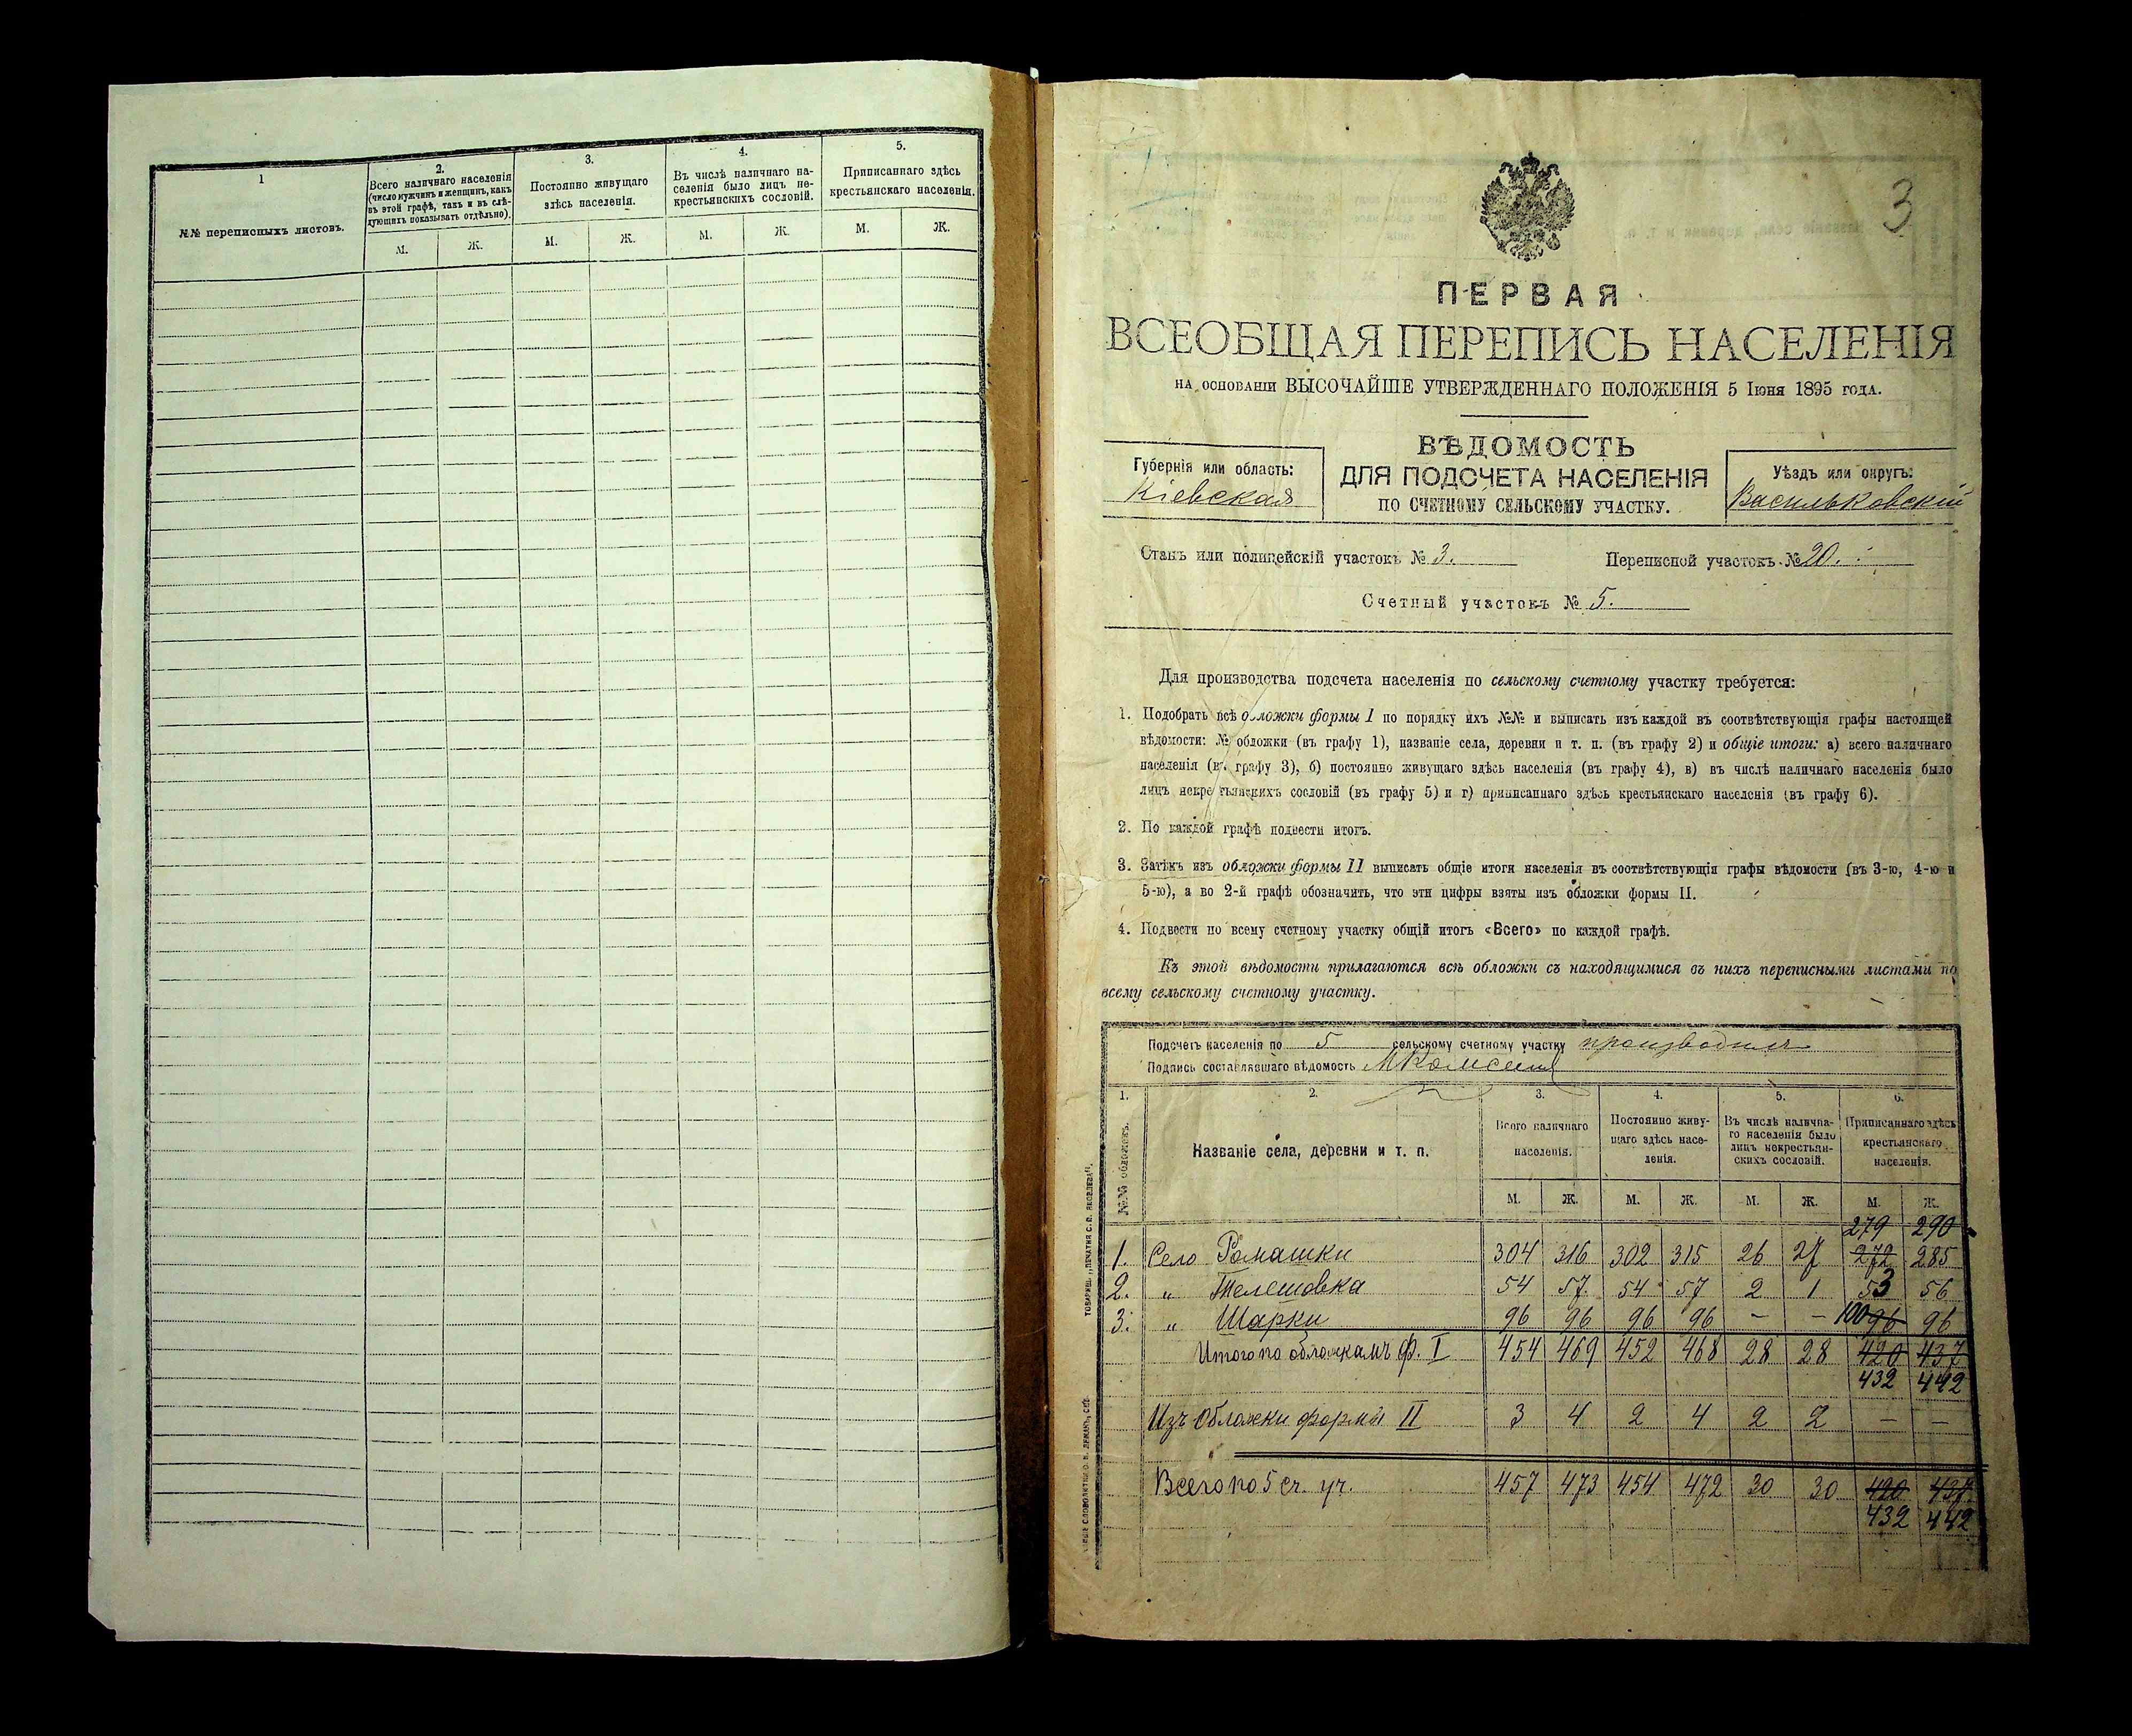 1
№№ переписныхъ листовъ.
2.
Всего наличнаго населенія
(число мужчинъ и женщинъ, какъ
въ этой графѣ, такъ и въ слѣ-
дующихъ показывать отдѣльно).
М. Ж.
3.
Постоянно живущаго
здѣсь населенія.
М. Ж.
4.
Въ числѣ наличнаго на-
селенія было лицъ не-
крестьянскихъ сословій.
М. Ж.
5.
Приписаннаго здѣсь
крестьянскаго населенія.
М. Ж.
3
ПЕРВАЯ
ВСЕОБЩАЯ ПЕРЕПИСЬ НАСЕЛЕНІЯ
НА ОСНОВАНІИ ВЫСОЧАЙШЕ УТВЕРЖДЕННАГО ПОЛОЖЕНІЯ 5 Іюня 1895 года.
Губернія или область:
Кіевская
ВѢДОМОСТЬ
ДЛЯ ПОДСЧЕТА НАСЕЛЕНІЯ
ПО СЧЕТНОМУ СЕЛЬСКОМУ УЧАСТКУ.
Уѣздъ или округъ:
Васильковскій
Станъ или полицейскій участокъ № 3. Переписной участокъ № 20.
Счетный участокъ № 5.
Для производства подсчета населенія по сельскому счетному участку требуется:
1. Подобрать всѣ обложки формы I по порядку ихъ №№ и выписать изъ каждой въ соотвѣтствующія графы настоящей
вѣдомости: № обложки (въ графу 1), названіе села, деревни и т. п. (въ графу 2) и общіе итоги: а) всего наличнаго
населенія (въ графу 3), б) постоянно живущаго здѣсь населенія (въ графу 4), в) въ числѣ наличнаго населенія было
лицъ некрестьянскихъ сословій (въ графу 5) и г) приписаннаго здѣсь крестьянскаго населенія (въ графу 6).
2. По каждой графѣ подвести итогъ.
3. Затѣмъ изъ обложки формы II выписать общіе итоги населенія въ соотвѣтствующія графы вѣдомости (въ 3-ю, 4-ю и
5-ю), а во 2-й графѣ обозначить, что эти цифры взяты изъ обложки формы II.
4. Подвести по всему счетному участку общій итогъ «Всего» по каждой графѣ.
Къ этой вѣдомости прилагаются всѣ обложки съ находящимися въ нихъ переписными листами по
всему сельскому счетному участку.
Подсчетъ населенія по 5 сельскому счетному участку производилъ
Подпись составлявшаго вѣдомость
1.
№№ обложекъ.
2.
Названіе села, деревни и т. п.
3.
Всего наличнаго
населенія.
М. Ж.
4.
Постоянно живу-
щаго здѣсь насе-
ленія.
М. Ж.
5.
Въ числѣ налична-
го населенія было
лицъ некрестьян-
скихъ сословій.
М. Ж.
6.
Приписаннаго здѣсь
крестьянскаго
населенія.
М. Ж.
279 290
1. Село Ромашки 304 316 302 315 26 27 272 285
2. „ Телешовка 54 57 54 57 2 1 53 56
3. „ Шарки 96 96 96 96 – – 100 96 96
Итого по обложкамъ ф. I 454 469 452 468 28 28 420 437
432 442
Изъ обложки формы II 3 4 2 4 2 2 — —
Всего по 5 сч. уч. 457 473 454 472 30 30 420 437
432 442
ТОВАРИЩ. „ПЕЧАТНЯ С. П. ЯКОВЛЕВА“.